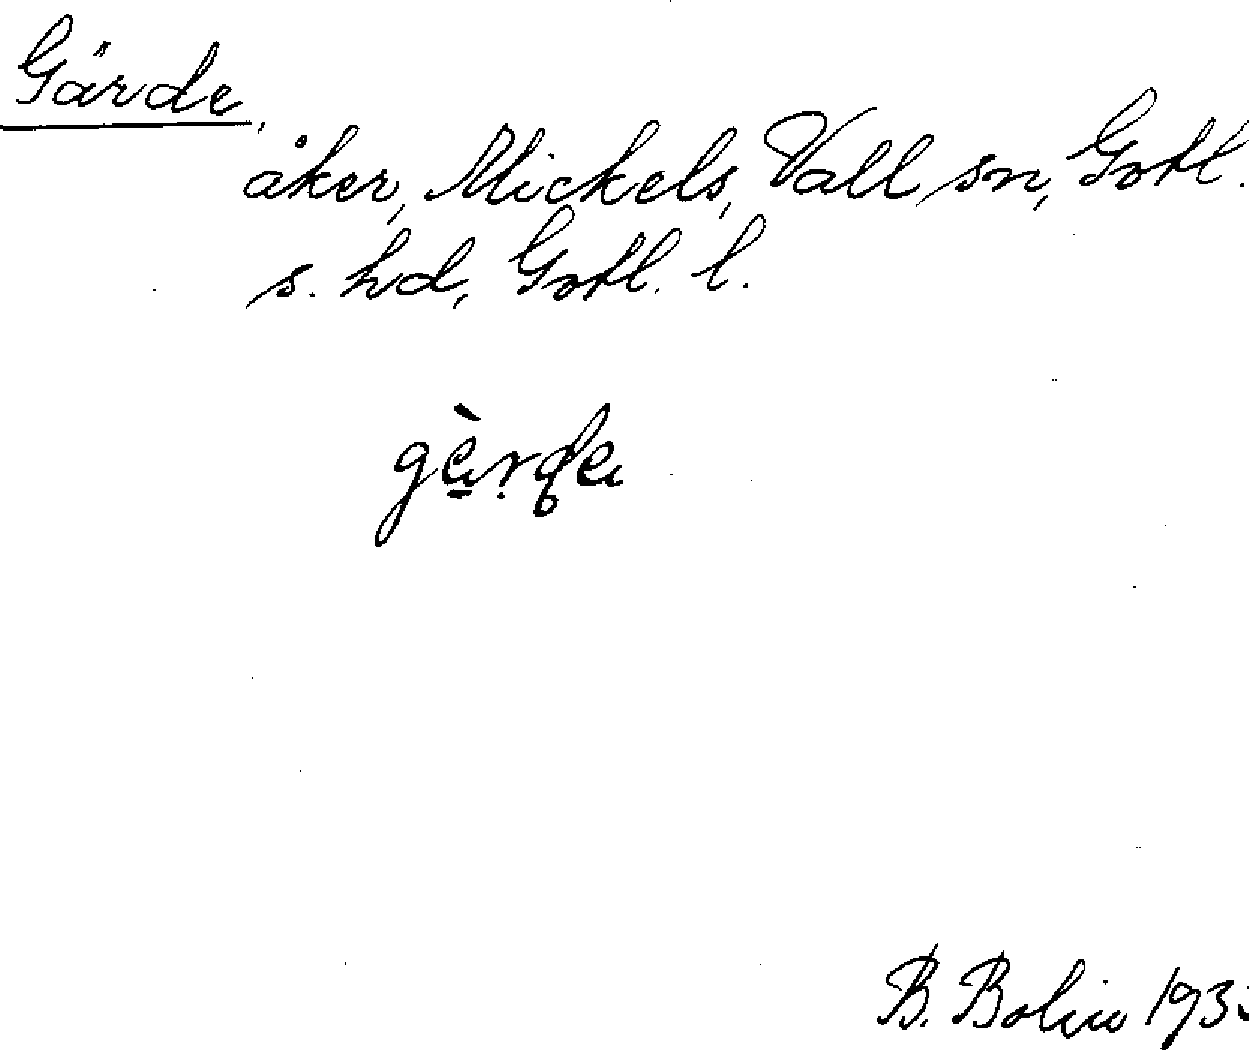 Gärde,
åker, Mickels, Vall sn, Gotl.
s. hd, Gotl. l.
B. Bolin